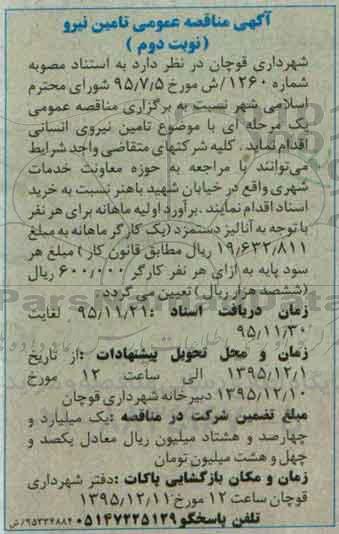 آگهی مناقصه عمومی تامین نیرو
( نوبت دوم )
شهرداری قوچان در نظر دارد به استناد مصوبه
شماره ۱۲۶۰/ش مورخ ۹۵/۷/۵ شورای محترم
اسلامی شهر نسبت به برگزاری مناقصه عمومی
یک مرحله ای با موضوع تامین نیروی انسانی
اقدام نماید . کلیه شرکتهای متقاضی واجد شرایط
می‌توانند با مراجعه به حوزه معاونت خدمات
شهری واقع در خیابان شهید باهنر نسبت به خرید
اسناد اقدام نمایند . برآورد اولیه ماهانه برای هر نفر
با توجه به آنالیز دستمزد (یک کارگر ماهانه به مبلغ
۱۹٫۶۳۲٫۸۱۱ ریال مطابق قانون کار ) مبلغ هر
سود پایه به ازای هر نفر کارگر ۶۰۰٫۰۰۰ ریال
(ششصد هزار ریال ) تعیین می گردد.
زمان دریافت اسناد :۹۵/۱۱/۲۱ لغایت
۹۵/۱۱/۳۰
زمان و محل تحویل پیشنهادات :از تاریخ
۱۳۹۵/۱۲/۱ الی ساعت ۱۲ مورخ
۱۳۹۵/۱۲/۱۰ دبیرخانه شهرداری قوچان
مبلغ تضمین شرکت در مناقصه :یک میلیارد و
چهارصد و هشتاد میلیون ریال معادل یکصد و
چهل و هشت میلیون تومان
زمان و مکان بازگشایی پاکات :دفتر شهرداری
قوچان ساعت ۱۲ مورخ ۱۳۹۵/۱۲/۱۱
تلفن پاسخگو ۰۵۱۴۷۲۲۵۱۲۹
۹۵۳۳۴۸۸۴/ش